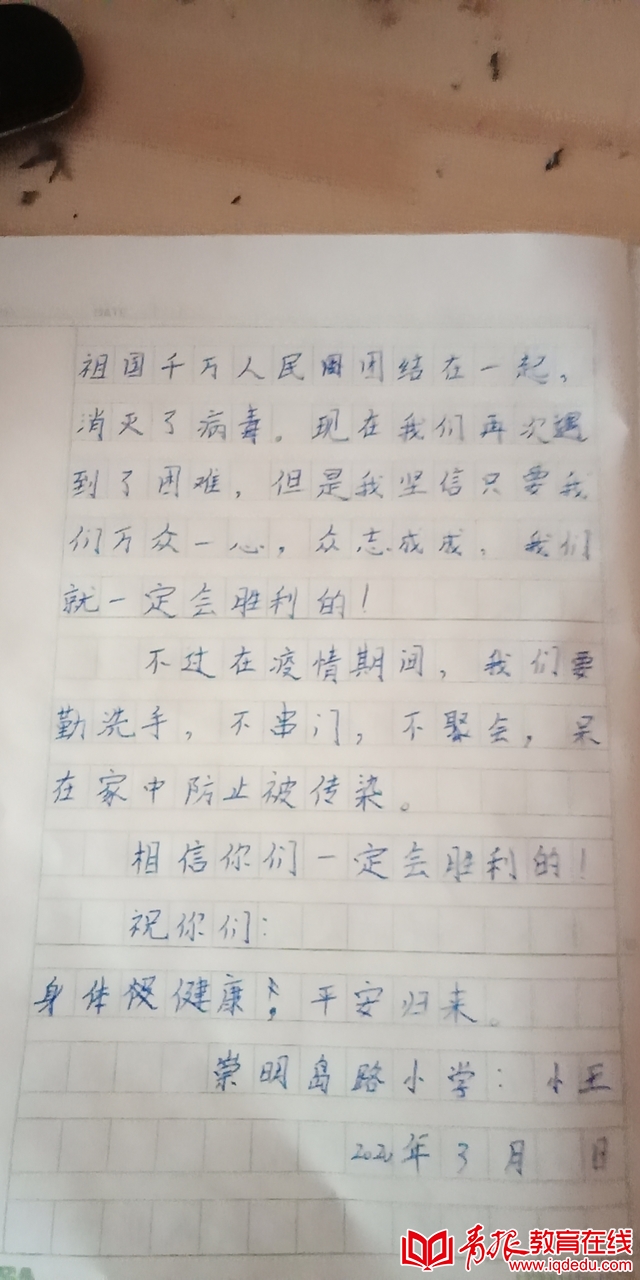 祖国千万人民团团结在一起，
消灭了病毒。现在我们再次遇
到了困难，但是我坚信只要我
们万众一心，众志成成，我们
就一定会胜利的！
不过在疫情期间，我们要
勤洗手，不串门，不聚会，呆
在家中防止被传染。
相信你们一定会胜利的！
祝你们：
身体健康，平安归来。
崇明岛路小学：小王
2020年3月 日
青报教育在线
www.iqdedu.com